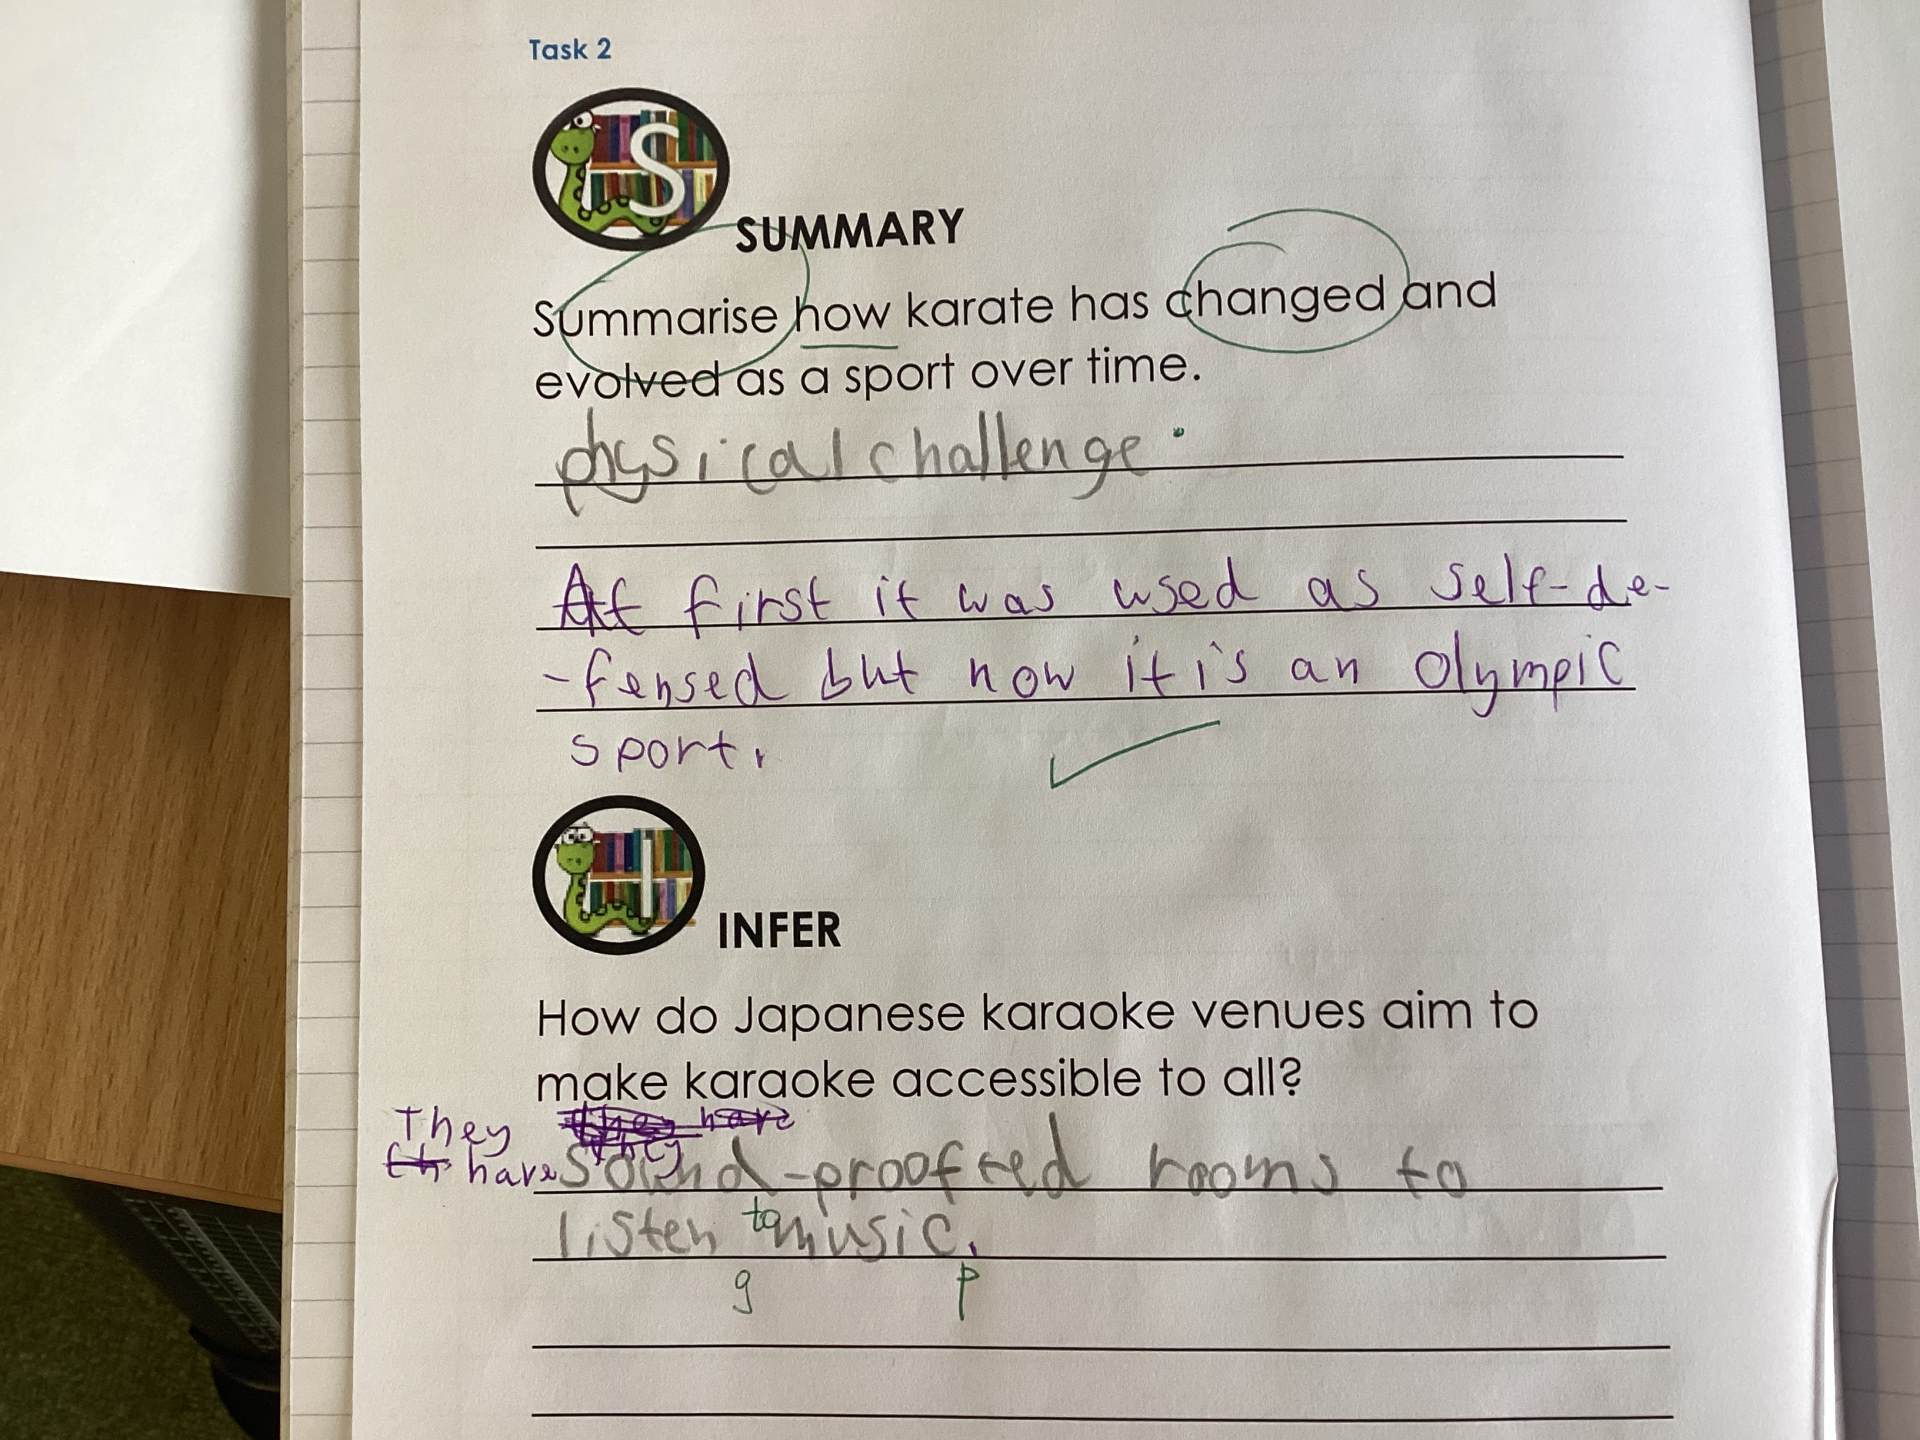 Task 2
S
SUMMARY
Summarise how karate has changed and
evolved as a sport over time.
physical challenge.
At first it was used as self-de-
-fensed but now it is an Olympic
sport.
I
INFER
How do Japanese karaoke venues aim to
make karaoke accessible to all?
They
have Sound-proofed rooms to
listen to music.
g p